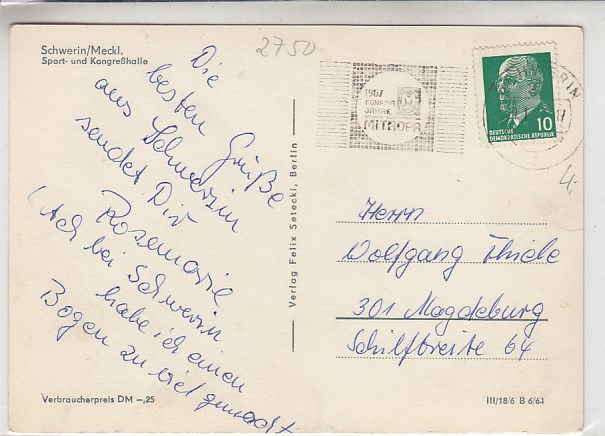 Schwerin/Meckl.
Sport- und Kongreßhalle
2750
Die
besten Grüße
aus Schwerin
sendet Dir
Rosemarie
(Ach bei Schwerin
habe ich einen
Bogen zu viel gemacht
Verbraucherpreis DM –,25
Verlag Felix Setecki, Berlin
1967
JAHRE
MITROPA
10
DEUTSCHE
DEMOKRATISCHE REPUBLIK
Herrn
Wolfgang Thiele
301 Magdeburg
Schilfbreite 64
III/18/6 B 6/61